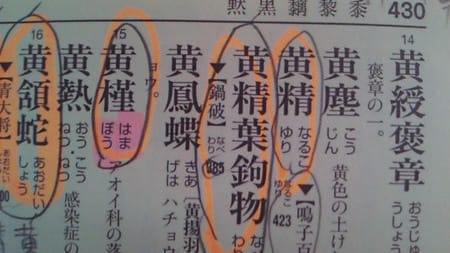 430
黙黒黐黎黍
14
黄綬褒章 おうじゅ
うしょう
褒章の一。
黄塵 こう
じん 黄色の土け
黄精 なるこ
ゆり ▼【鳴子百
なるこ
ゆり 423
黄精葉鉤物 な
わり
▼【鍋破】 なべ
わり 485
黄鳳蝶 きあ
げは 【黄揚羽
ハチョウ
ョウ。
15
黄槿 はま
ぼう アオイ科の落
黄熱 おう・こう
ねつ・ねつ 感染症の
16
黄頷蛇 あおだい
しょう
▼【青大将】 あおだい
00